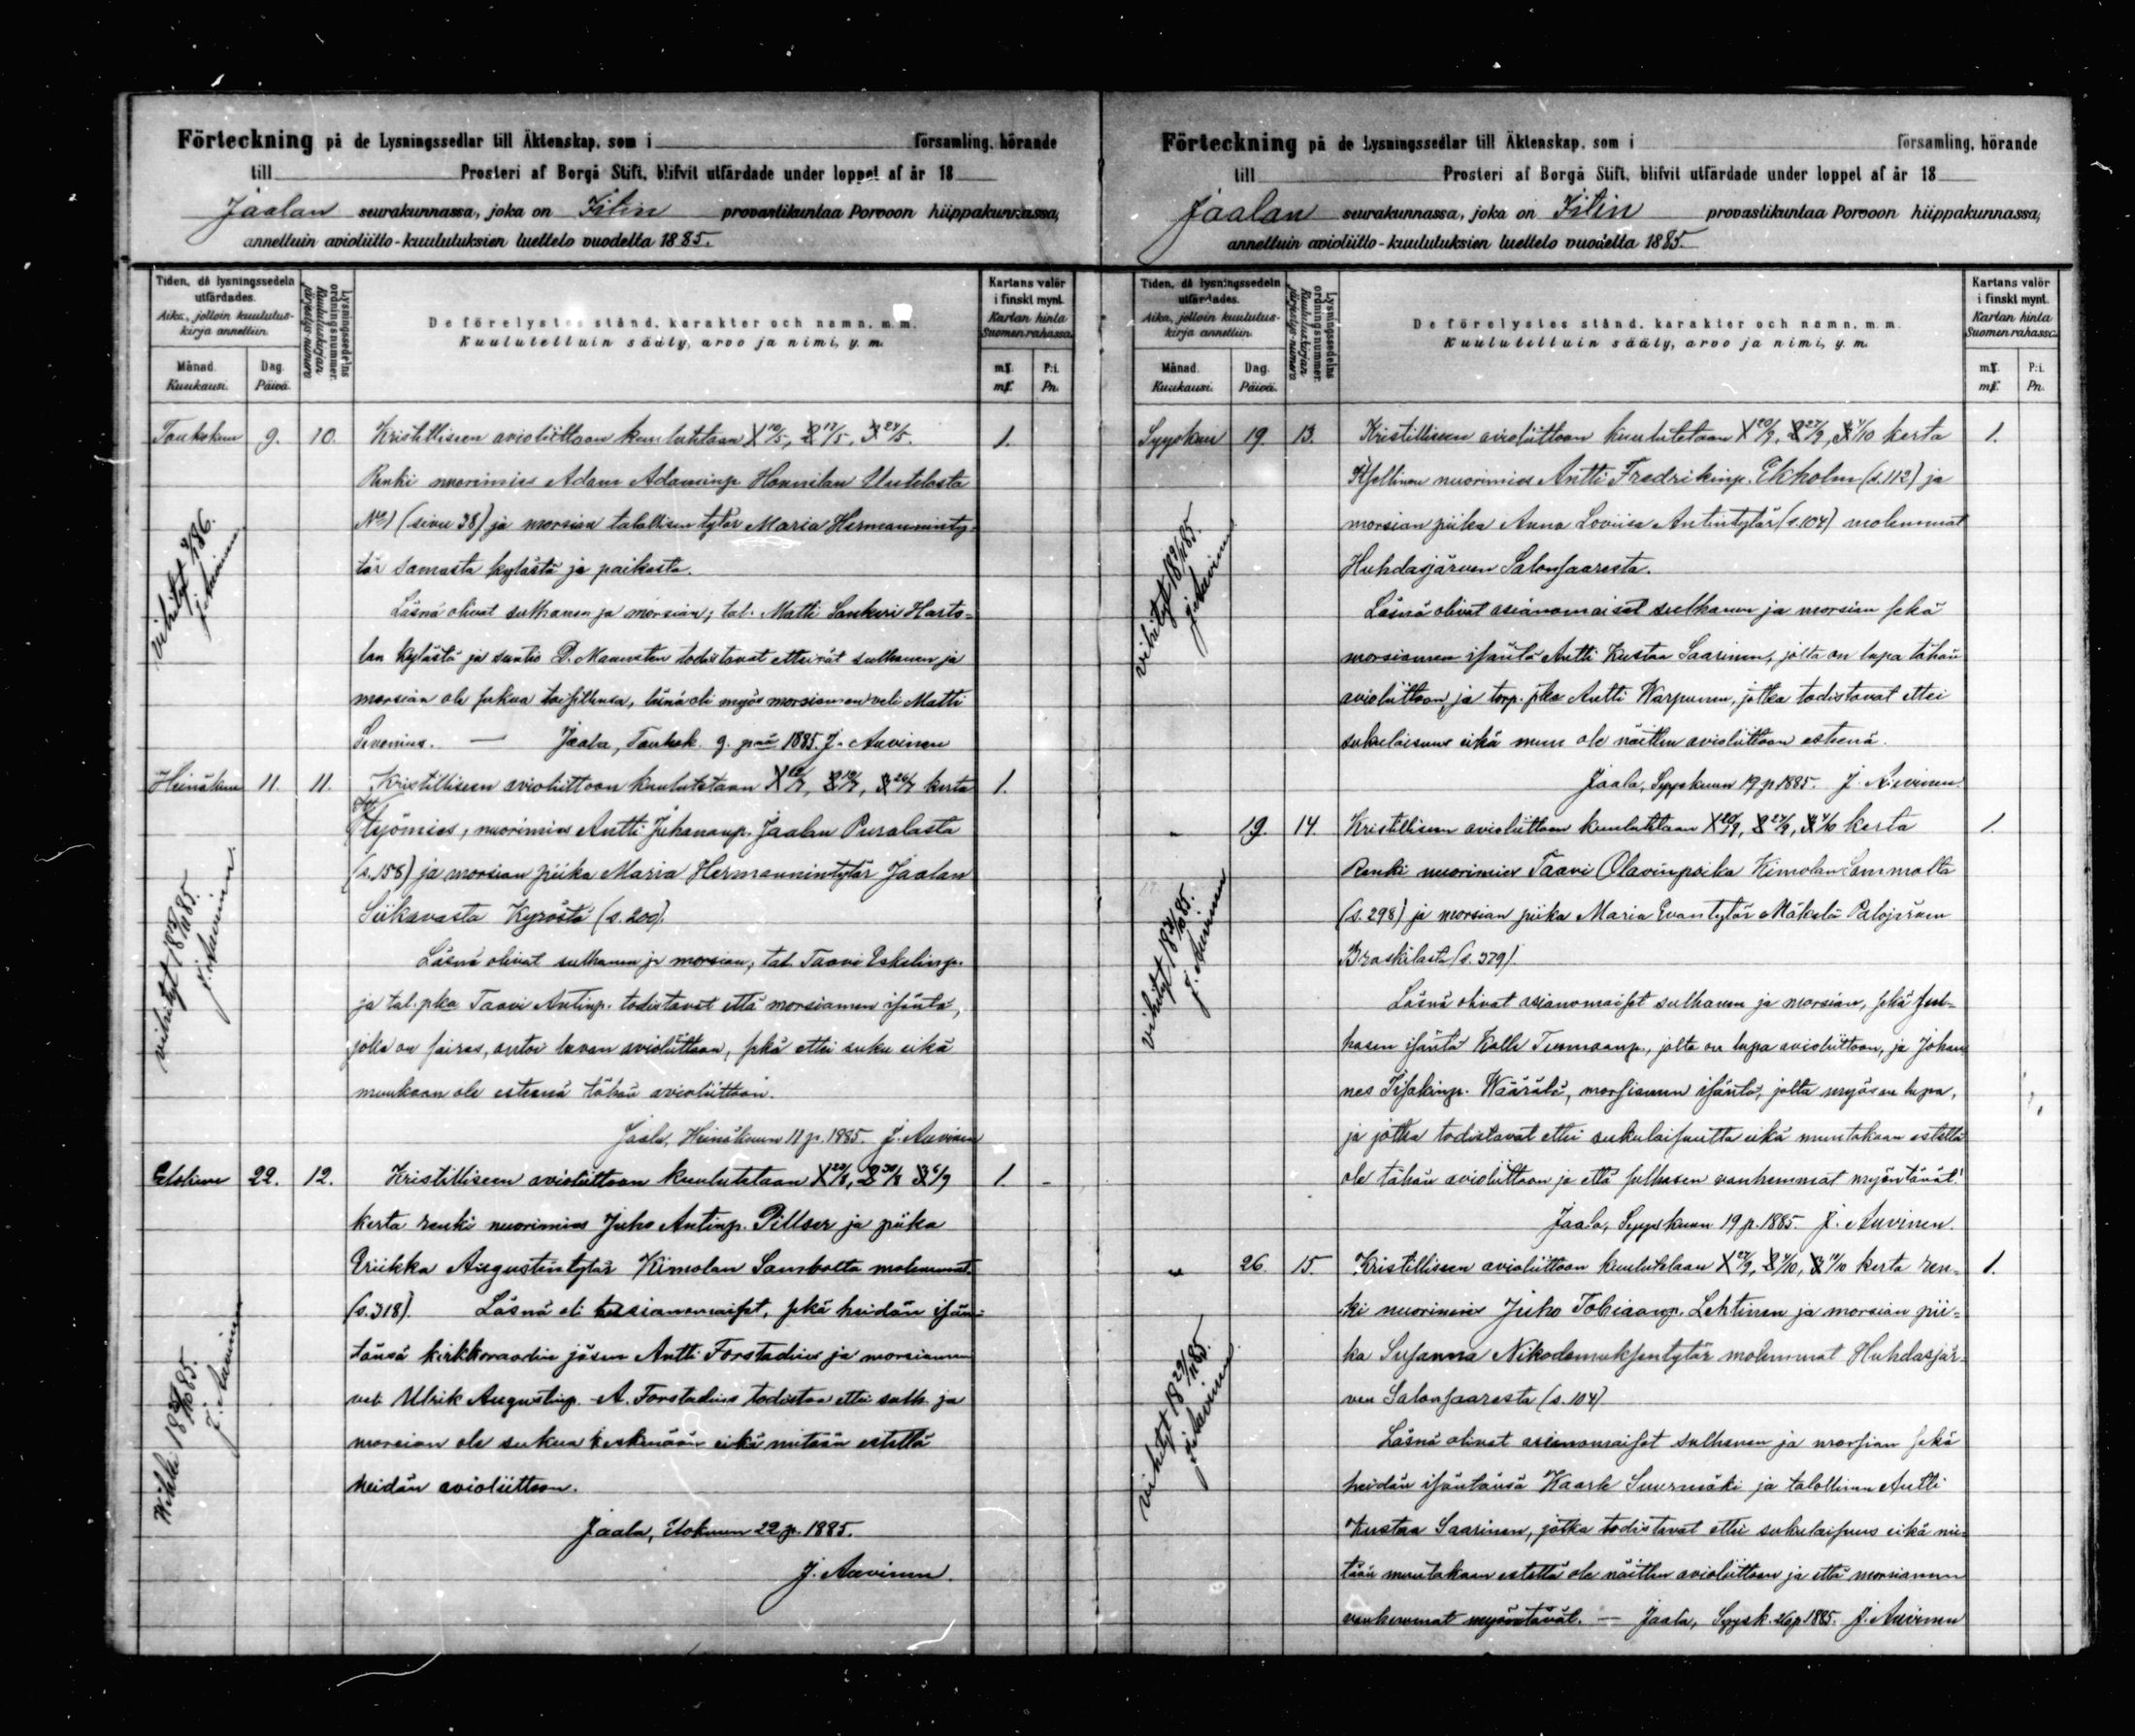 Förteckning på de Lysningssedlar till Äktenskap, som i församling, hörande
till Prosteri af Borgå Stift, blifvit utfärdade under loppet af år 18
Jaalan seurakunnassa, joka on Iitin provastikuntaa Porvoon hiippakunnassa,
annettuin avioliitto-kuulutuksien luettelo vuodelta 1885.
Tiden, då lysningssedeln utfärdades.
Aika, jolloin kuulutus-kirja annettiin.
Månad. Kuukausi.
Dag. Päivä.
Lysningssedelns ordningsnummer.
Kuulutuskirjan järjestys-numero
De förelystes stånd, karakter och namn, m. m.
Kuulutettuin sääty, arvo ja nimi, y. m.
Kartans valör i finskt mynt.
Kartan hinta Suomen rahassa.
mk. P:i.
mk. Pn.
Toukokuu 9. 10. Kristilliseen avioliittoon kuulutetaan X 10/5, 2 17/5, 3 24/5. 1.
Renki nuorimies Adam Adaminp. Honnilan Uutelasta
No 1 (sivu 38) ja morsian talollisen tytär Maria Hermanninty-
tär samasta kylästä ja paikasta.
Läsnä olivat sulhanen ja morsian; tal. Matti Sankeri Harto-
lan kylästä ja suntio D. Maunsten todistavat etteivät sulhanen ja
morsian ole sukua toisillensa, läsnä oli myös morsiamen veli Matti
Sivenius. — Jaala, Toukok. 9. pnä 1885. J. Auvinen
vihityt
J. Auvinen
Heinäkuu 11. 11. Kristilliseen avioliittoon kuulutetaan X 12/7, 2 19/7, 3 26/7 kerta 1.
työmies, nuorimies Antti Juhananp. Jaalan Puralasta
(s. 158) ja morsian piika Maria Hermannintytär Jaalan
Siikavasta Kyröstä (s. 200).
Läsnä olivat sulhanen ja morsian; tal. Taavi Eskelinp.
ja tal. pka Taavi Antinp. todistavat että morsiamen isäntä,
joka on sairas, antoi luvan avioliittoon, sekä ettei suku eikä
muukaan ole esteenä tähän avioliittoon.
Jaala, Heinäkuun 11 p. 1885. J. Auvinen
vihityt
J. Auvinen
Elokuu 22. 12. Kristilliseen avioliittoon kuulutetaan X 23/8, 2 30/8 3 6/9 1. -
kerta renki nuorimies Juho Antinp. Pillser ja piika
Eriikka Augustintytär Kimolan Sambolta molemmat
(s. 318). Läsnä oli asianomaiset, sekä heidän isän-
tänsä kirkkoraadin jäsen Antti Forstadius ja morsiamen
veli Ulrik Augustinp. A. Forstadius todistaa ettei sulh. ja
morsian ole sukua keskenään eikä mitään estettä
heidän avioliittoon.
Jaala, Elokuun 22 p. 1885.
J. Auvinen.
Vihitt.
J. Auvinen
Förteckning på de Lysningssedlar till Äktenskap, som i församling, hörande
till Prosteri af Borgå Stift, blifvit utfärdade under loppet af år 18
Jaalan seurakunnassa, joka on Iitin provastikuntaa Porvoon hiippakunnassa,
annettuin avioliitto-kuulutuksien luettelo vuodelta 1885.
Tiden, då lysningssedeln utfärdades.
Aika, jolloin kuulutus-kirja annettiin.
Månad. Kuukausi.
Dag. Päivä.
Lysningssedelns ordningsnummer.
Kuulutuskirjan järjestys-numero
De förelystes stånd, karakter och namn, m. m.
Kuulutettuin sääty, arvo ja nimi, y. m.
Kartans valör i finskt mynt.
Kartan hinta Suomen rahassa.
mk. P:i.
mk. Pn.
Syyskuu 19. 13. Kristilliseen avioliittoon kuulutetaan X 20/9, 2 27/9, 3 4/10 kerta 1.
Itsellinen nuorimies Antti Fredrikinp. Ekholm (s. 112) ja
morsian piika Anna Loviisa Antintytär (s. 104) molemmat
Huhdasjärven Salonsaaresta.
Läsnä olivat asianomaiset sulhanen ja morsian sekä
morsiamen isäntä Antti Kustaa Saarinen, jolta on lupa tähän
avioliittoon, ja torp. pka Antti Warpunen, jotka todistavat ettei
sukulaisuus eikä muu ole näitten avioliittoon esteenä.
Jaala, Syyskuun 19 p. 1885. J. Auvinen.
vihityt
J. Auvinen
" 19. 14. Kristilliseen avioliittoon kuulutetaan X 20/9, 2 27/9, 3 4/10 kerta 1.
Renki nuorimies Taavi Olavinpoika Kimolan Sammalta
(s. 298) ja morsian piika Maria Evantytär Mäkelä Palojärven
Braskilasta (s. 379).
Läsnä olivat asianomaiset sulhanen ja morsian, sekä sul-
hasen isäntä Kalle Tuomaanp., jolta on lupa avioliittoon, ja Johan-
nes Iisakinp. Wäärälä, morsiamen isäntä, jolta myös on lupa,
ja jotka todistavat ettei sukulaisuutta eikä muutakaan estettä
ole tähän avioliittoon ja että sulhasen vanhemmat myöntävät.
Jaala, Syyskuun 19 p. 1885. J. Auvinen.
vihityt
J. Auvinen
" 26. 15. Kristilliseen avioliittoon kuulutetaan X 27/9, 2 4/10, 3 11/10 kerta ren- 1.
ki nuorimies Juho Tobiaanp. Lehtinen ja morsian pii-
ka Susanna Nikodemuksentytär molemmat Huhdasjär-
ven Salonsaaresta (s. 104)
Läsnä olivat asianomaiset sulhanen ja morsian sekä
heidän isäntänsä Kaarle Suurmäki ja talollinen Antti
Kustaa Saarinen, jotka todistavat ettei sukulaisuus eikä mi-
tään muutakaan estettä ole näitten avioliittoon ja että morsiamen
vanhemmat myöntävät. — Jaala, Syysk. 26 p 1885. J. Auvinen
vihityt
J. Auvinen